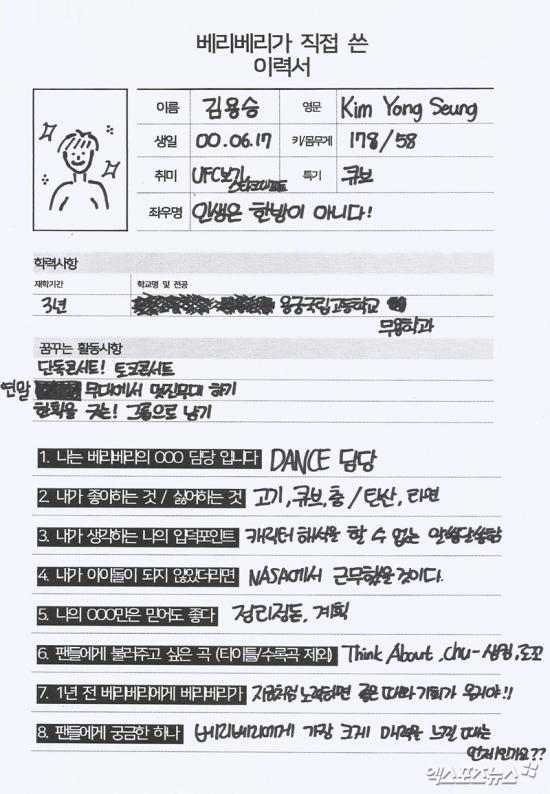 베리베리가 직접 쓴
이력서
이름 김용승 영문 Kim Yong Seung
생일 00.06.17 키/몸무게 178/58
취미 UFC보기, 스타크래프트 특기 큐브
좌우명 인생은 한방이 아니다!
학력사항
재학기간 학교명 및 전공
3년 국립고등학교
무용학과
꿈꾸는 활동사항
단독콘서트! 토크콘서트
연말 무대에서 멋진무대 하기
한획을 긋는! 그룹으로 남기
1. 나는 베리베리의 OOO 담당 입니다 DANCE 담당
2. 내가 좋아하는 것 / 싫어하는 것 고기, 큐브, 춤 / 탄산, 라면
3. 내가 생각하는 나의 입덕포인트 캐릭터 해석을 할 수 없는 알쏭달쏭함
4. 내가 아이돌이 되지 않았더라면 NASA에서 근무했을것이다.
5. 나의 OOO만은 믿어도 좋다 정리정돈, 계획
6. 팬들에게 불러주고 싶은 곡 (타이틀/수록곡 제외) Think About, chu-
7. 1년 전 베리베리에게 베리베리가 지금처럼 노력하면 좋은 기회가 올거야!!
8. 팬들에게 궁금한 하나 베리베리에게 가장 크게 매력을 느낄 때는
언제인가요??
엑스포츠뉴스